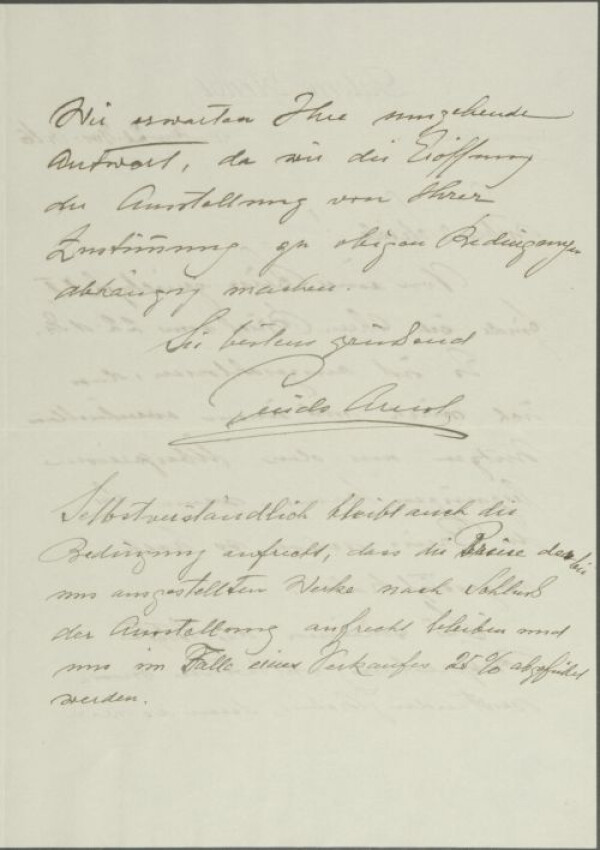 Wir erwarten Ihre umgehende
Antwort, da wir die Eröffnung
der Ausstellung von Ihrer
Zustimmung zu obigen Bedingungen
abhängig machen.
Sie bestens grüssend
Guido Arnot
Selbstverständlich bleibt auch die
Bedingung aufrecht, dass die Preise der bei
uns ausgestellten Werke nach Schluß
der Ausstellung aufrecht bleiben und
uns im Falle eines Verkaufes 25% abgeführt
werden.